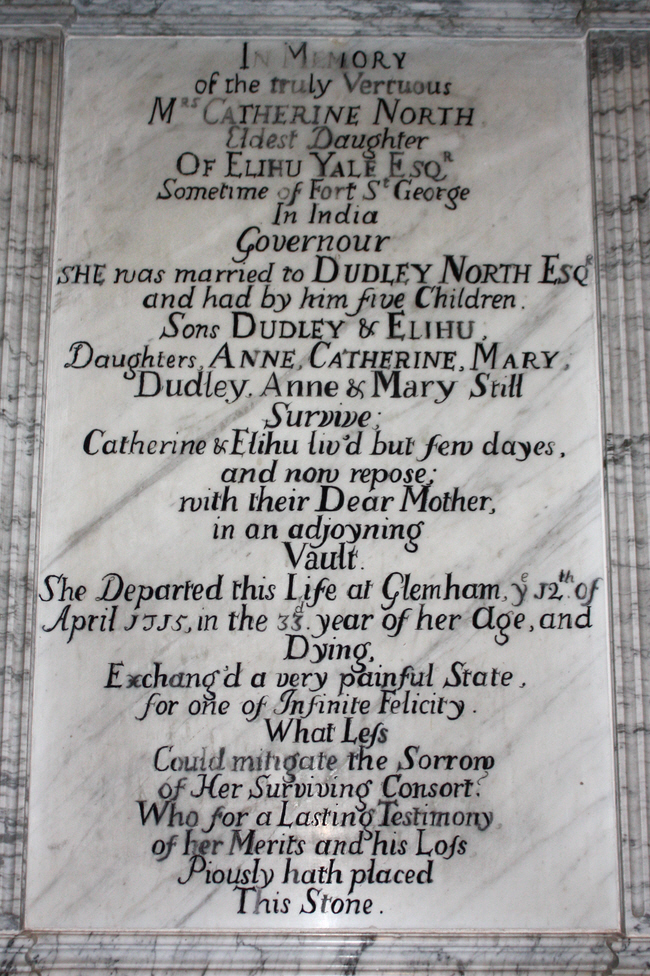 In Memory
of the truly Vertuous
Mrs CATHERINE NORTH
Eldest Daughter
OF ELIHU YALE ESQR
Sometime of Fort St George
In India
Governour
SHE was married to DUDLEY NORTH ESQR
and had by him five Children.
Sons DUDLEY & ELIHU,
Daughters, ANNE, CATHERINE, MARY,
Dudley, Anne & Mary Still
Survive;
Catherine & Elihu liv'd but few dayes,
and now repose;
with their Dear Mother,
in an adjoyning
Vault.
She Departed this Life at Glemham, ye 12th of
April 1715, in the 33d year of her Age, and
Dying,
Exchang'd a very painful State,
for one of Infinite Felicity.
What Leſs
Could mitigate the Sorrow
of Her Surviving Consort?
Who for a Lasting Testimony
of her Merits and his Loſs
Piously hath placed
This Stone.